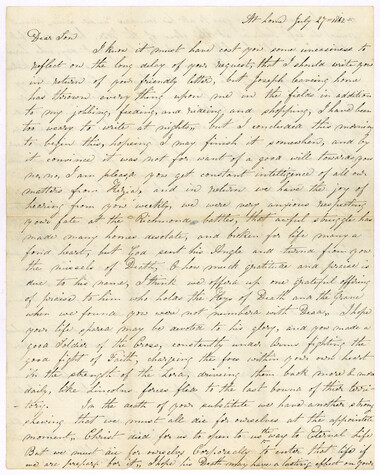 At home July 27th 1862
Dear Son
I know it must have cost you some uneasiness to
reflect on the long delay of your request, that I should write you
in return of your friendly letter, but Joseph leaving home
has thrown every thing upon me in the fields in addition
to my jobbing, feeding, and riding and shopping, I have been
too weary to write at nights, but I concluded this morning
to begin this, hoping I may finish it somewhen, and by
it convince it was not for want of a good will towards you
no, no, I am pleased you get constant intelligence of all our
matters from and in return we have the joy of
hearing from you weekly, we were very anxious respecting
your fate at the Richmond battles, that awful struggle has
made many homes desolate, and broken for life many a
fond heart, but God sent his Angle and turned from you
the mussels of Death, O how much gratitude and praise is
due to his name, I think we offered up one grateful offering
of praise to him who holds the Keys of Death and the grave
when we found you were not numbered with Dead, I hope
your life spared may be devoted to his glory, and you made a
good Soldier of the Cross, constantly under arms fighting the
good fight of Faith, charging the foes within your own heart
in the strength of the Lord, driving them back more & more
daily, like Lincolns forces flee to the last bound of their terri-
tory. In the death of your substitute we have another strong
shewing that we must all die for ourselves at the appointed
moment, Christ died for us to open to us the way to Eternal Life
But we must die for ourselves Corporeally to enter that life if
we are prepared for it, I hope his Death may have a lasting effect on your